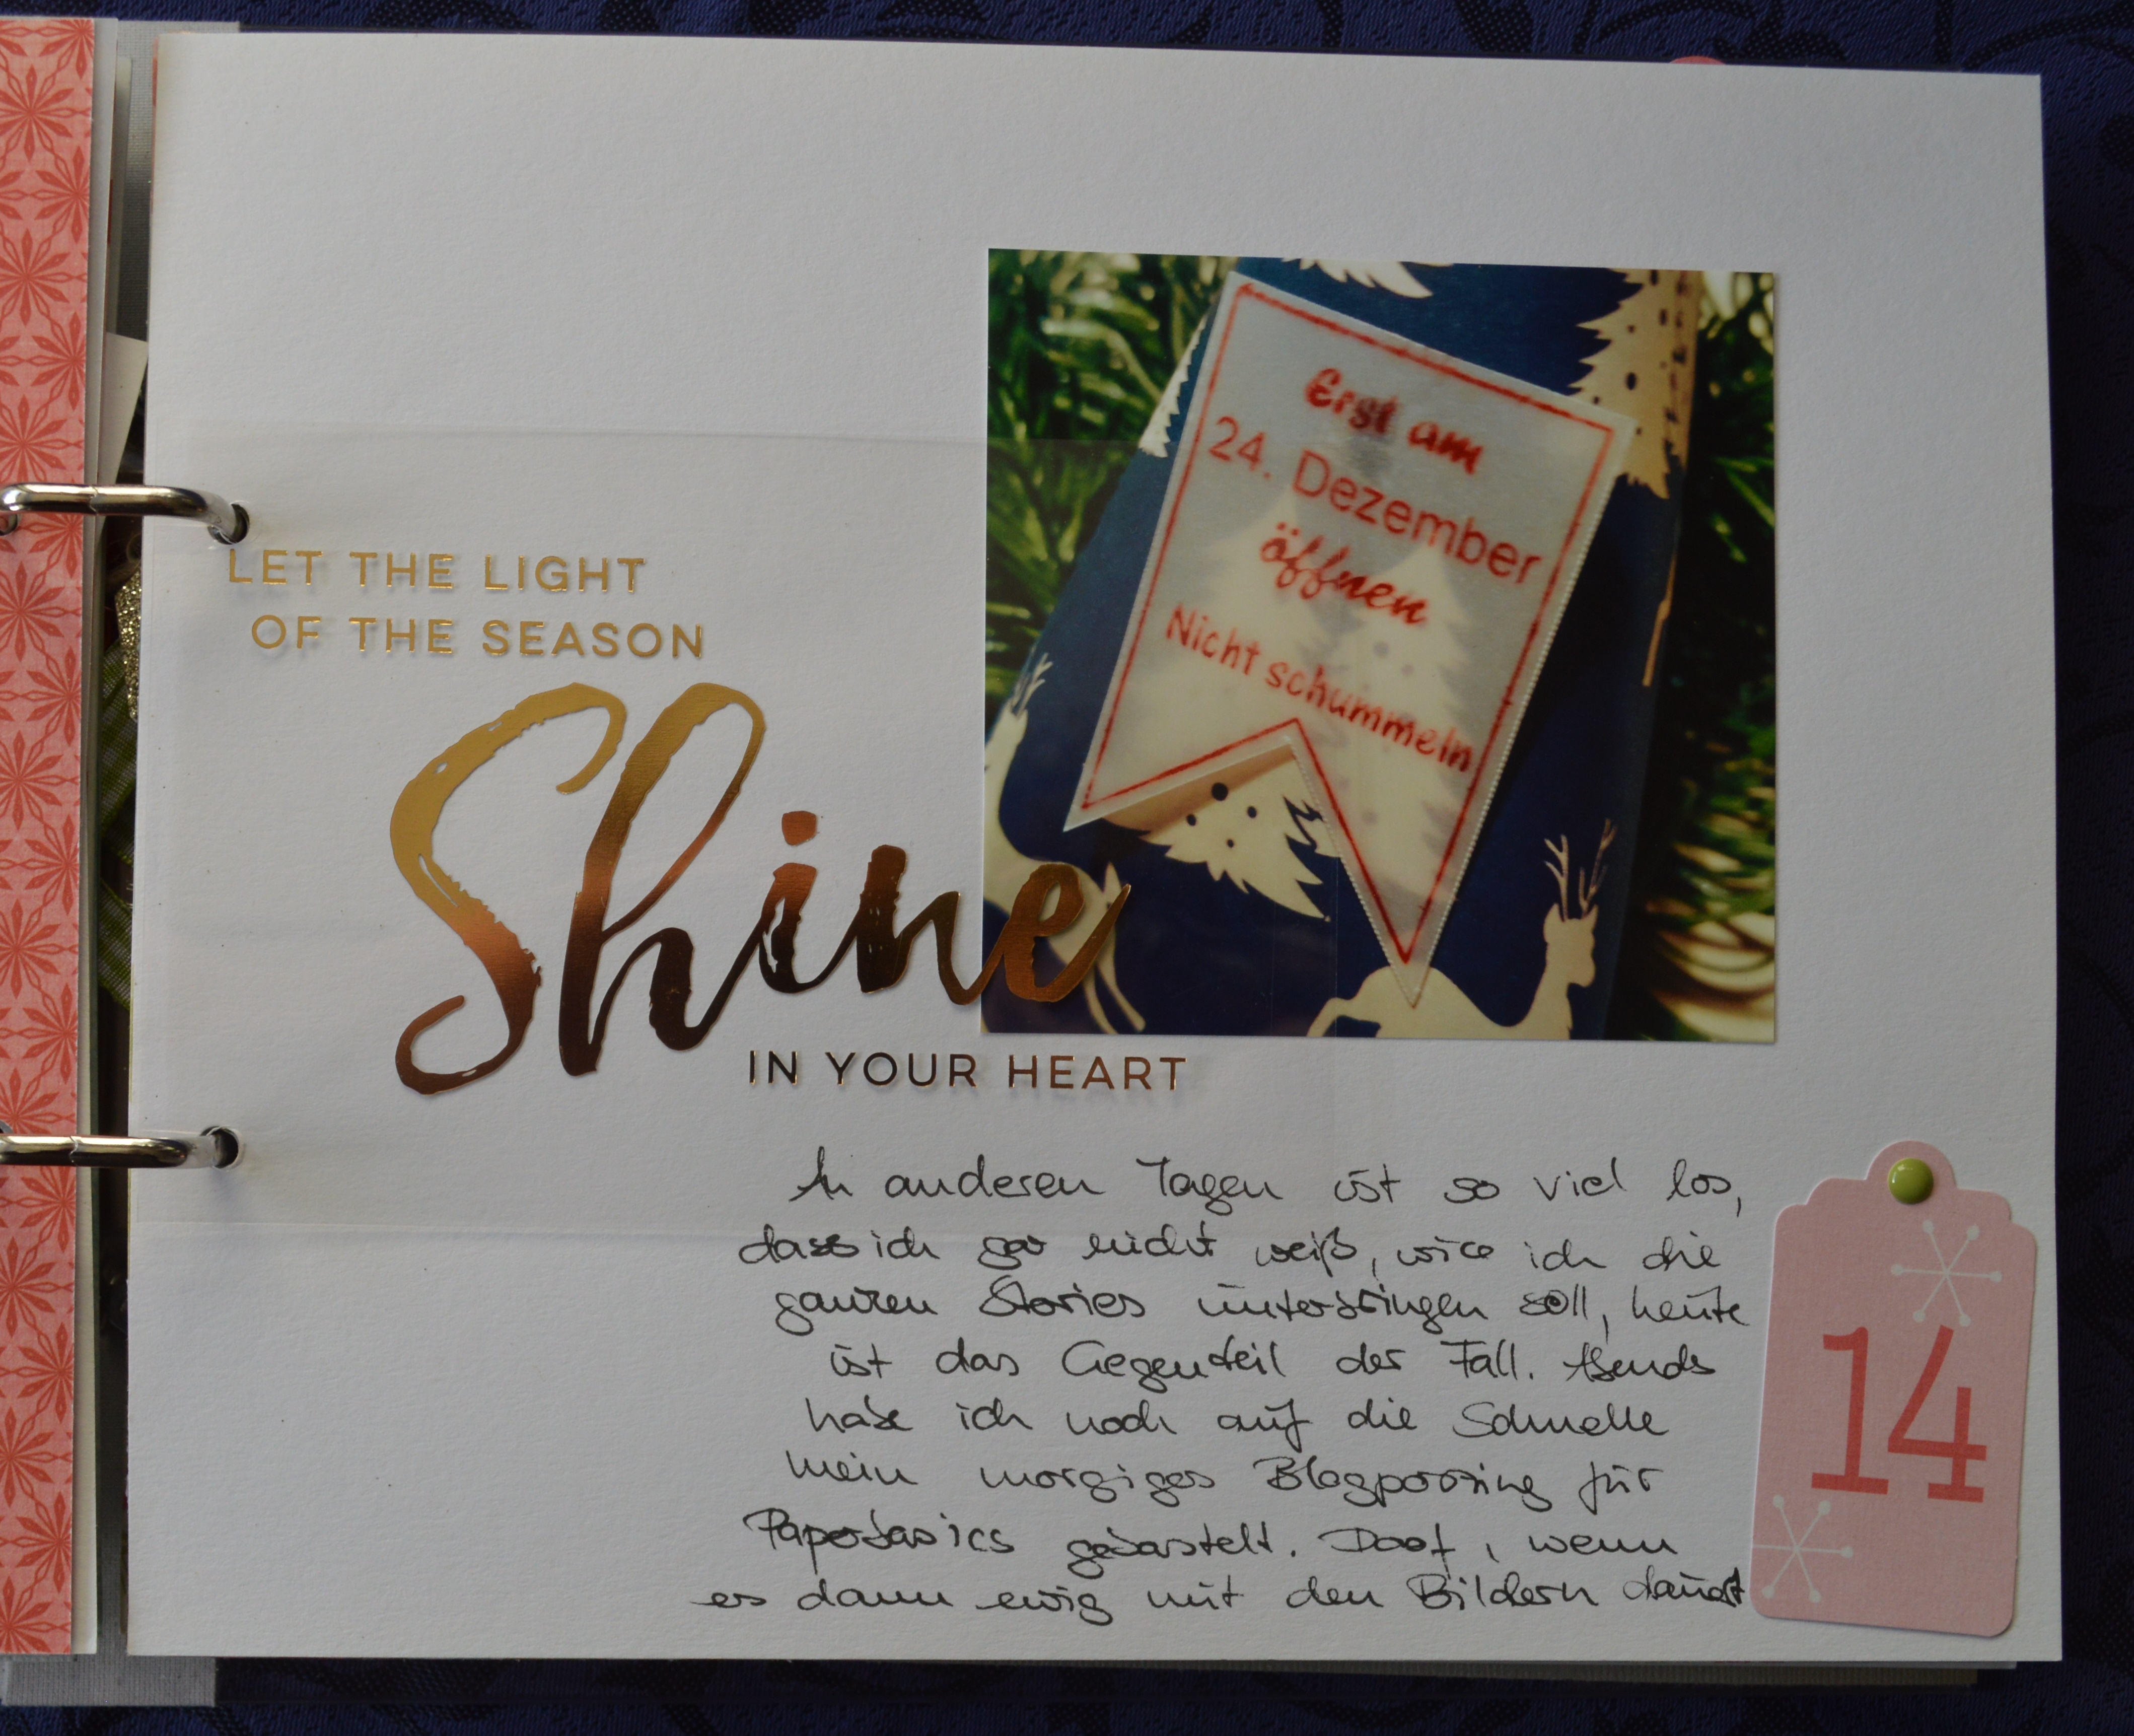 LET THE LIGHT
OF THE SEASON
Shine
IN YOUR HEART
Erst am
24. Dezember
öffnen
Nicht schummeln
An anderen Tagen ist so viel los,
dass ich gar nicht weiß, wie ich die
ganzen Stories unterbringen soll, heute
ist das Gegenteil der Fall. Abends
habe ich noch auf die Schnelle
mein morgiges Blogposting für
Paperbasics gebastelt. Doof, wenn
es dann ewig mit den Bildern dauert
14